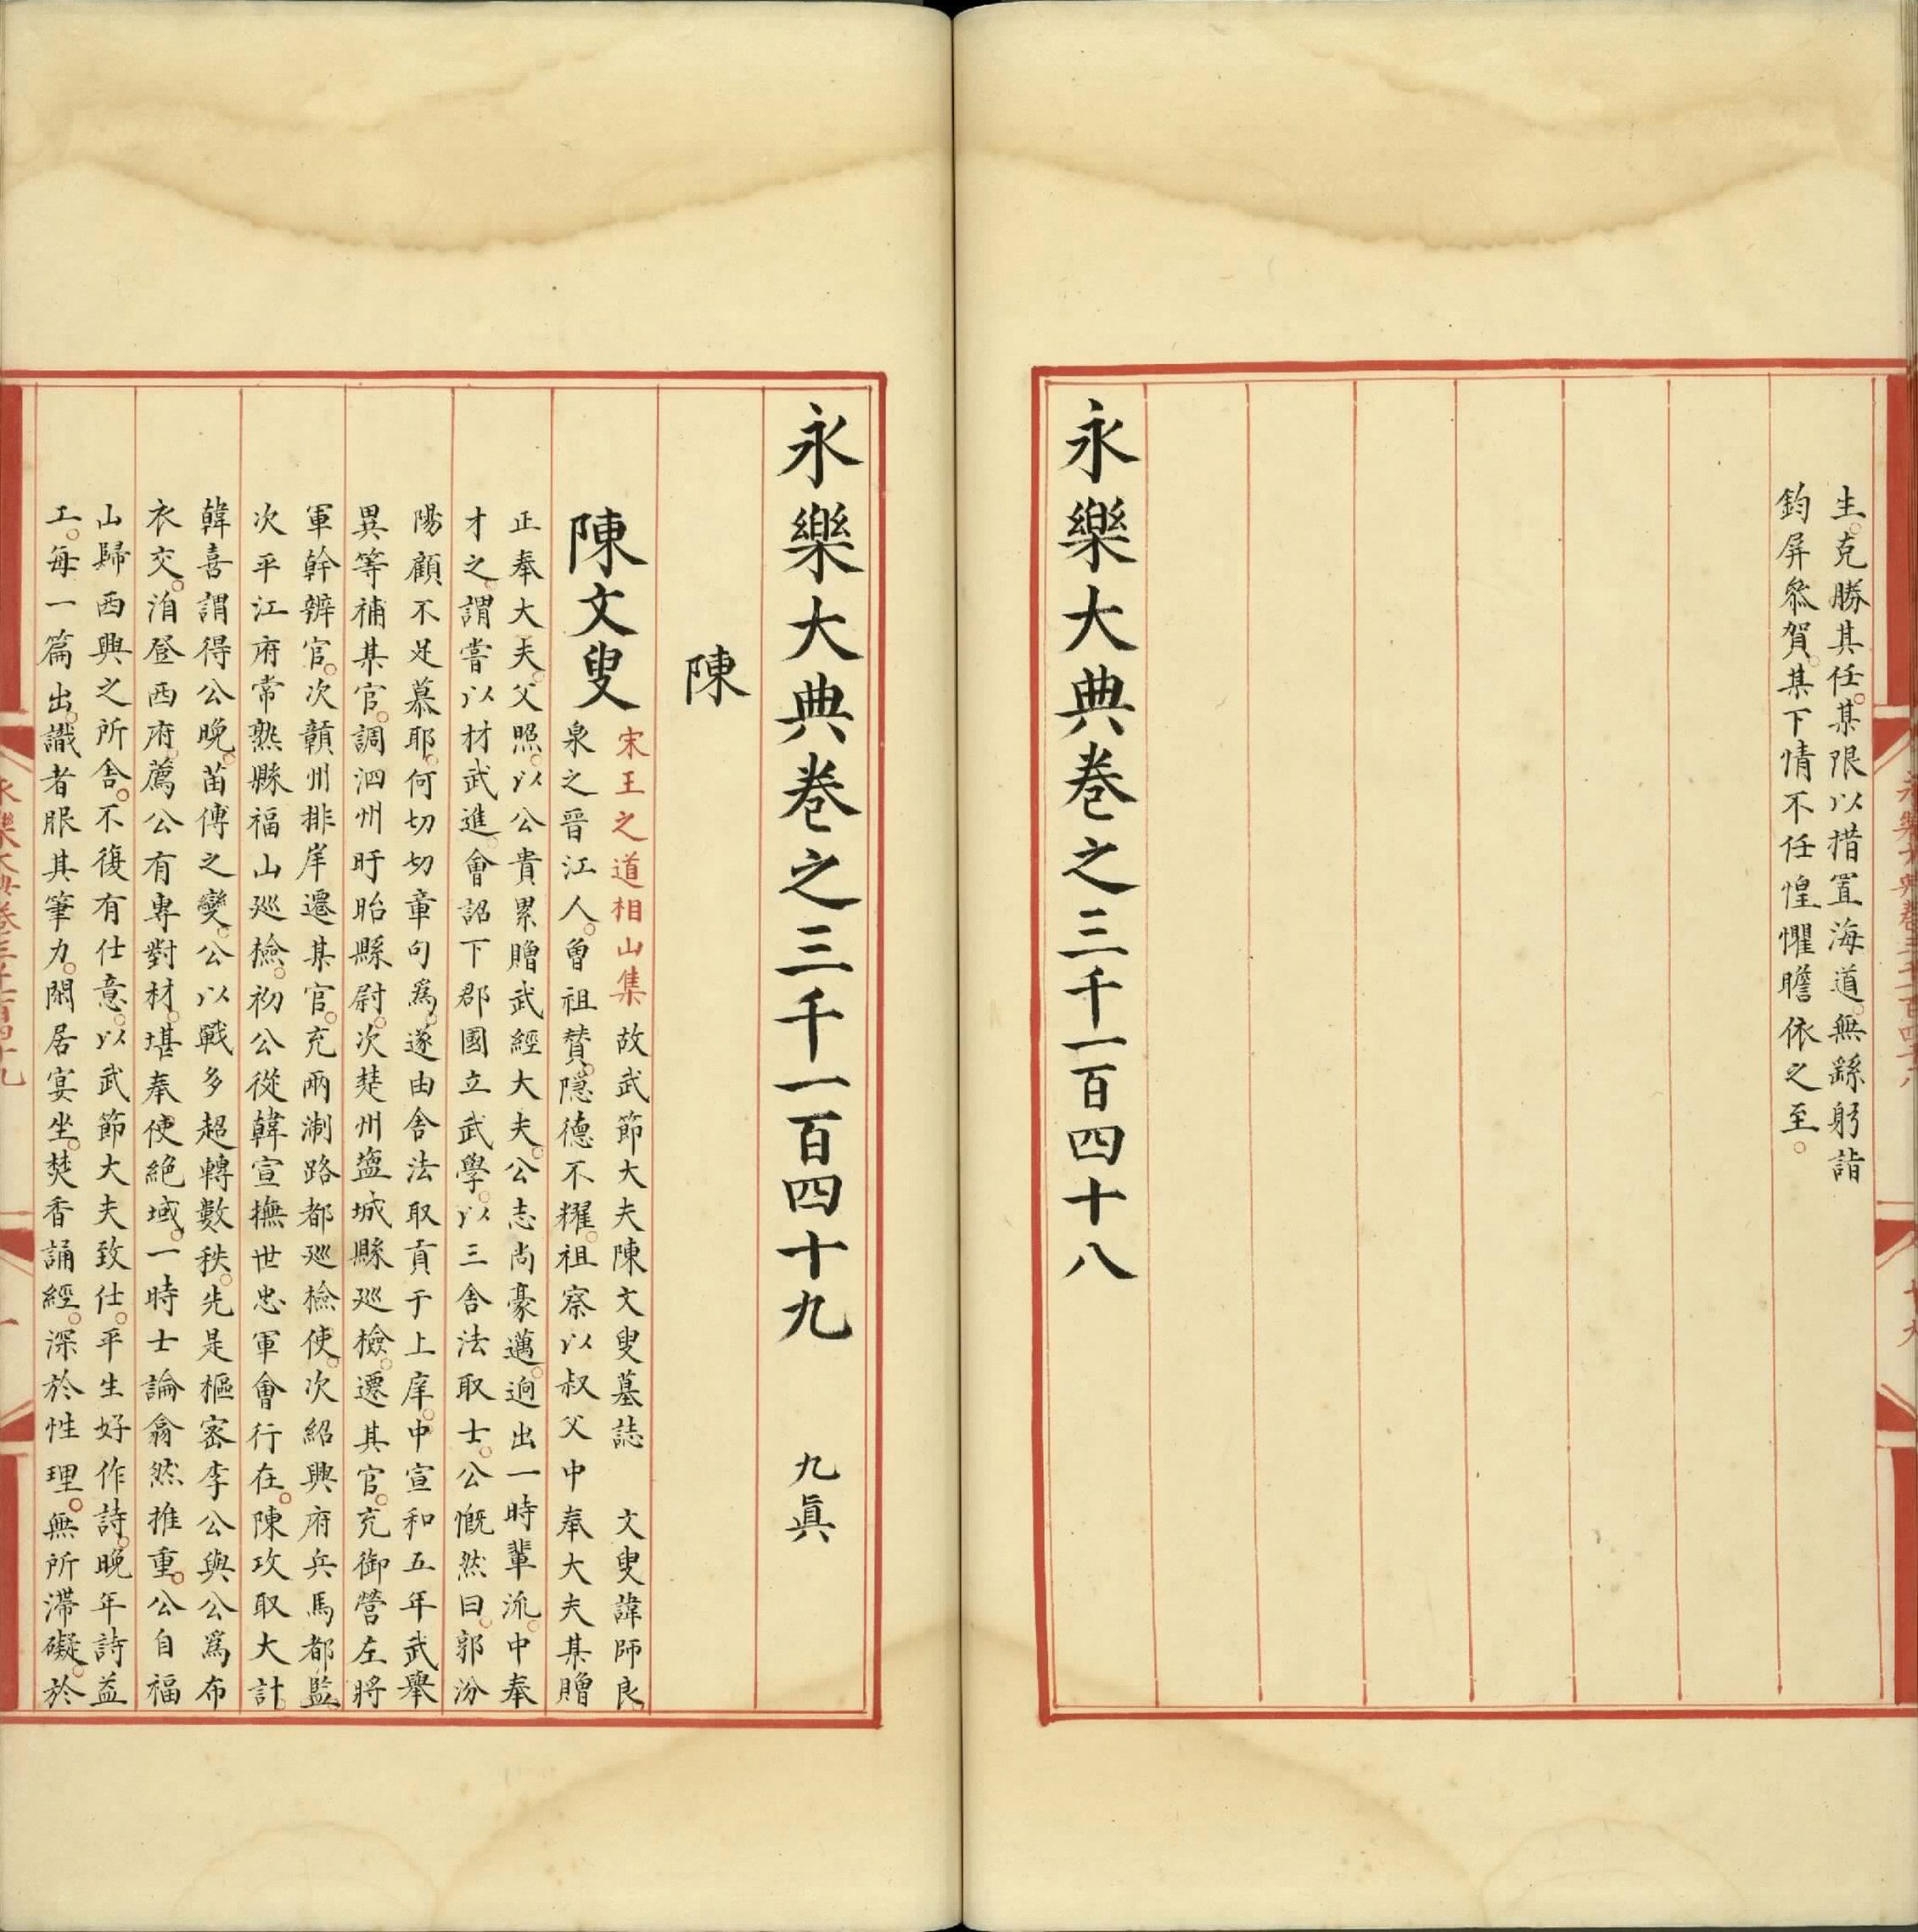 生克勝其任某限以措置海道無繇躬詣
鈞屏叅賀某下情不任惶懼瞻依之至
永樂大典卷之三千一百四十八
永樂大典卷之三千一百四十九 九眞
陳
陳文叟
宋王之道相山集 故武節大夫陳文叟墓誌 文叟諱師良
泉之晉江人曾祖賛隠德不耀祖察以叔父中奉大夫某贈
正奉大夫父照以公貴累贈武經大夫公志尚豪邁逈出一時輩流中奉
才之謂嘗以材武進會詔下郡國立武學以三舍法取士公慨然曰郭汾
陽顧不足慕耶何切切章句爲遂由舍法取貢于上庠中宣和五年武舉
異等補某官調泗州盱眙縣尉次楚州塩城縣廵檢遷其官充御營左將
軍幹辦官次贑州排岸遷某官充兩淛路都廵檢使次紹興府兵馬都監
次平江府常熟縣福山廵檢初公從韓宣撫世忠軍會行在陳攻取大計
韓喜謂得公晚苗傅之變公以戰多超轉數秩先是樞宻李公與公爲布
衣交洎登西府薦公有專對材堪奉使絕域一時士論翕然推重公自福
山歸西興之所舍不復有仕意以武節大夫致仕平生好作詩晚年詩益
工每一篇出識者服其筆力閑居宴坐焚香誦經深於性理無所滯礙於